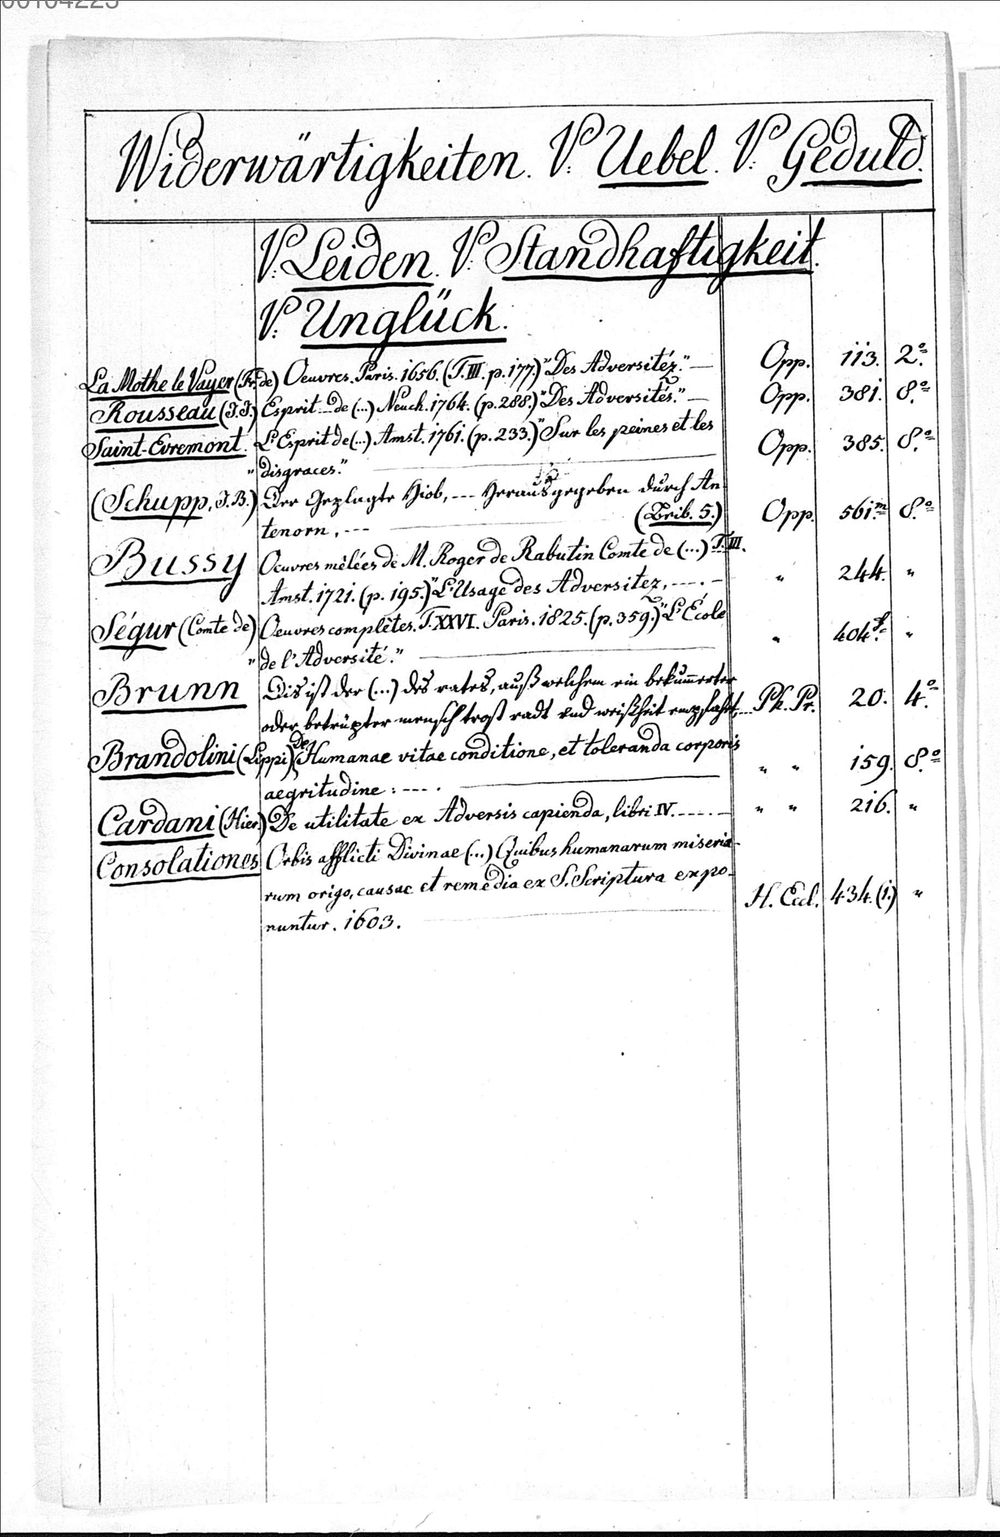 Widerwärtigkeiten. V: Uebel. V: Geduld.
V: Leiden. V: Standhaftigkeit.
V: Unglück.
La Mothe le Vayer (Fr. de) Oeuvres. Paris. 1656. (T. III. p. 177.) "Des Adversitéz." — Opp. 113. 2.°
Rousseau (J.J.) Esprit --- de (...) Neuch. 1764. (p. 288.) "Des Adversités." — Opp. 381. 8.°
Saint-Evremont. L'Esprit de (...) Amst. 1761. (p. 233.) "Sur les peines et les
"disgraces." Opp. 385. 8.°
(Schupp, J.B.) Der Geplagte Hiob, --- Herausgegeben durch An
tenorn, --- (Trib. 5.) Opp. 561.m 8.°
Bussy Oeuvres mêlées de M. Roger de Rabutin Comte de (...) T. III.
Amst. 1721. (p. 195.) "L'Usage des Adversitez, ---. — " 244. "
Ségur (Comte de) Oeuvres complètes. T. XXVI. Paris. 1825. (p. 359.) "L'École
"de l'Adversité." " 404 "
Brunn Dis ist der (...) des rates, auß welchem ein bekummerter
oder betrüpter mensch trost radt und weißheit empfaht, Ph. Pr. 20. 4.°
Brandolini (Lippi) De Humanae vitae conditione, et toleranda corporis
aegritudine: ---. " " 159. 8.°
Cardani (Hier.) De utilitate ex Adversis capienda, libri IV. ---. — " " 216. "
Consolationes Orbis afflicti Divinae (...) Quibus humanarum miseria-
rum origo, causae et remedia ex S. Scriptura expo-
nuntur. 1603. H. Eccl. 434. (1.) "